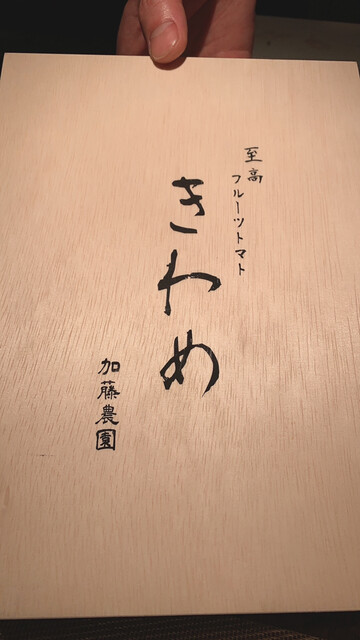 至高
フルーツトマト
きわめ
加藤農園